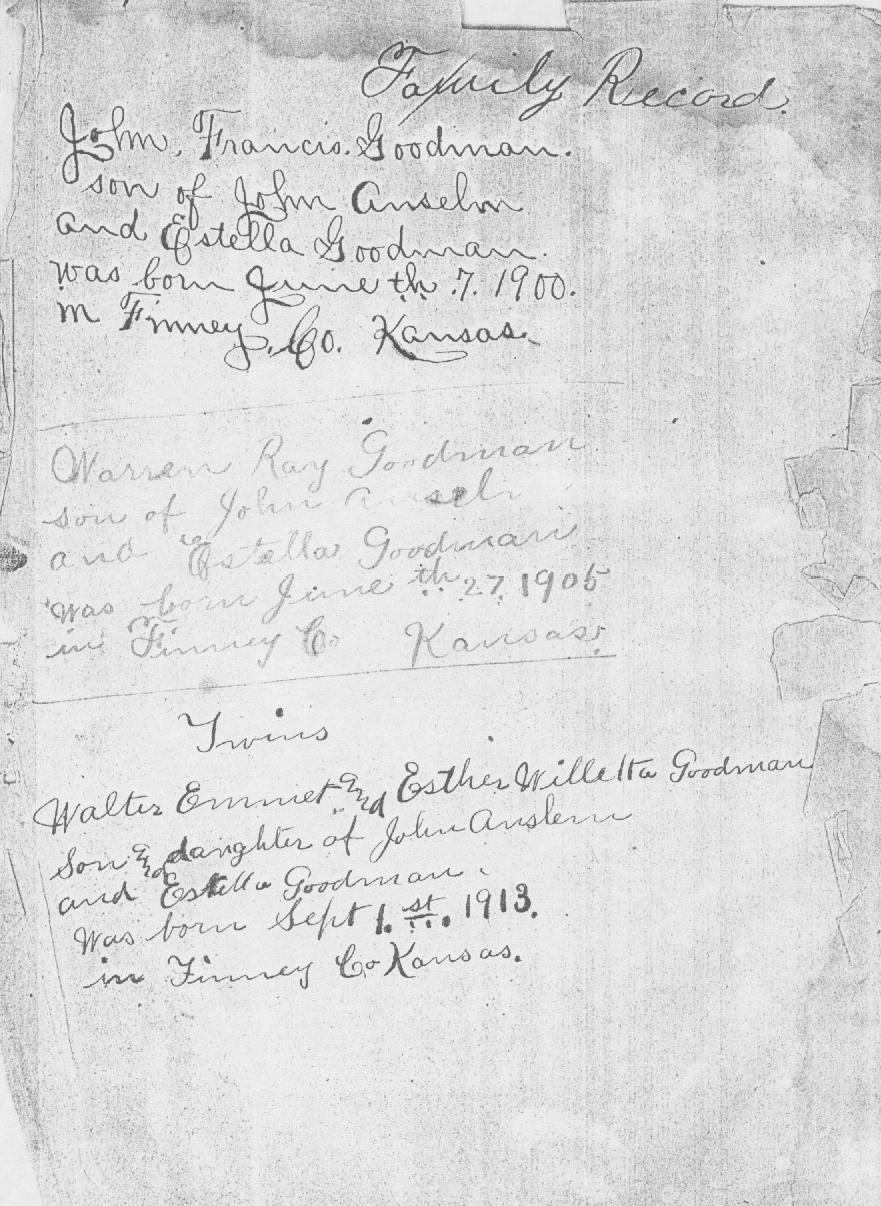 Family Record.
John, Francis. Goodman.
son of John Anselm
and Estella Goodman.
was born June th. 7. 1900.
in Finney, Co. Kansas.
Warren Ray Goodman
son of John
and Estella Goodman
was born June th 27, 1905
in Finney Co Kansas.
Twins
Walter Emmet and Esther Willetta Goodman
son and daughter of John Anslem
and Estella Goodman.
Was born Sept 1. st. 1913.
in Finney Co Kansas.